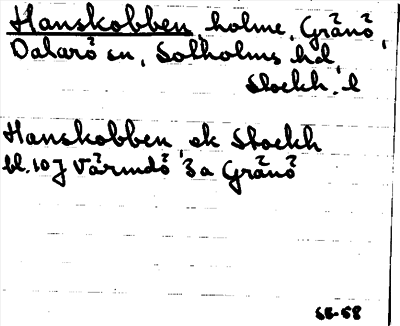 Hanskobben, holme, Gränö,
Dalarö sn, Sotholms hd,
Stockh. l
Hanskobben, ek Stockh
bl. 107 Värmdö 3a Gränö
SE-58